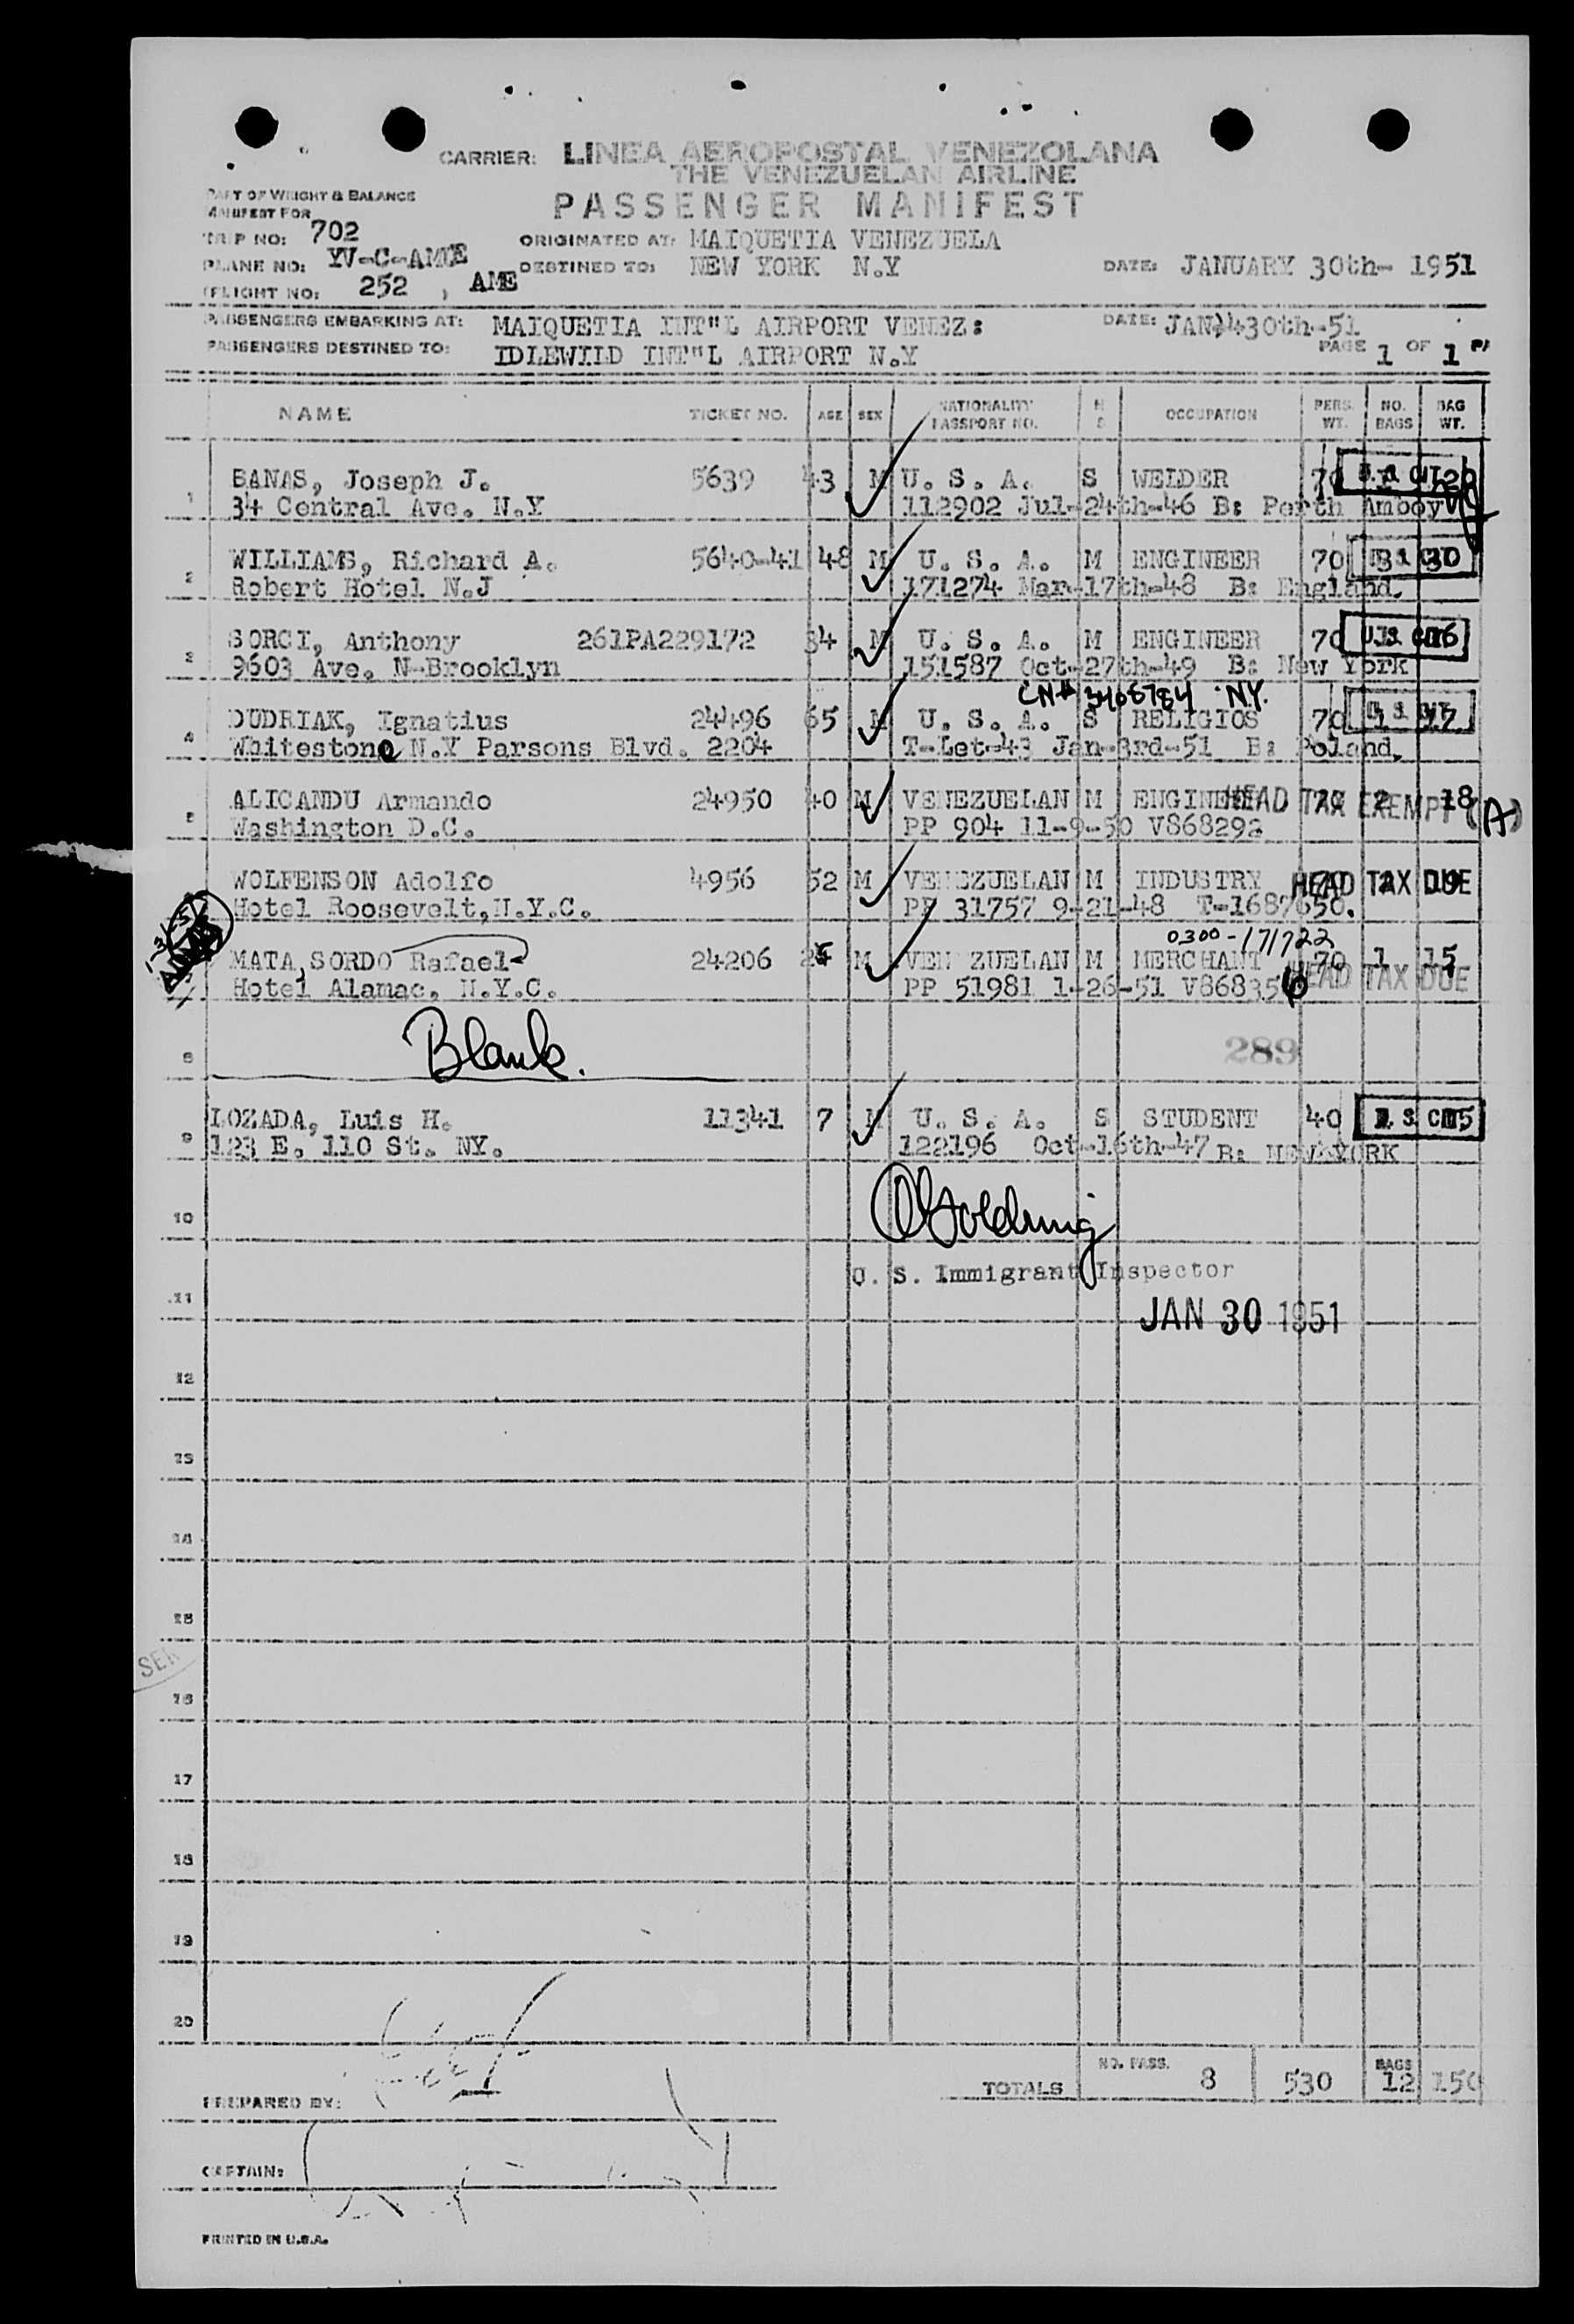 CARRIER: LINEA AEROPOSTAL VENEZOLANA
THE VENEZUELAN AIRLINE
PASSENGER MANIFEST
PART OF WEIGHT & BALANCE
MANIFEST FOR
TRIP NO: 702
ORIGINATED AT: MAIQUETIA VENEZUELA
PLANE NO: YV-C-AME
DESTINED TO: NEW YORK N.Y
DATE: JANUARY 30th- 1951
FLIGHT NO: 252 , AME
PASSENGERS EMBARKING AT: MAIQUETIA INT"L AIRPORT VENEZ:
DATE: JAN 30th-51
PASSENGERS DESTINED TO: IDLEWILD INT"L AIRPORT N.Y
PAGE 1 OF 1
NAME TICKET NO. AGE SEX NATIONALITY PASSPORT NO. OCCUPATION PERS. WT. NO. BAGS BAG WT.
1 BANAS, Joseph J. 5639 43 M U. S. A. S WELDER 70 20
34 Central Ave. N.Y 112902 Jul-24th-46 B: Perth Amboy
2 WILLIAMS, Richard A. 5640-41 48 M U. S. A. M ENGINEER 70 3 30
Robert Hotel N.J 171274 Mar-17th-48 B: England.
3 SORCI, Anthony 261PA229172 34 M U. S. A. M ENGINEER 70 U.S. CIT
9603 Ave. N-Brooklyn 151587 Oct-27th-49 B: New York
CN# 3408784 NY.
4 DUDRIAK, Ignatius 24496 65 M U. S. A. S RELIGIOS 70 1 17
Whitestone N.Y Parsons Blvd. 2204 T-Let-43 Jan-3rd-51 B: Poland,
5 ALICANDU Armando 24950 40 M VENEZUELAN M ENGINEER 70 2 18 HEAD TAX EXEMPT (A)
Washington D.C. PP 904 11-9-50 V868292
WOLFENSON Adolfo 4956 52 M VENEZUELAN M INDUSTRY 70 2 19 HEAD TAX DUE
Hotel Roosevelt,N.Y.C. PP 31757 9-21-48 T-1687650.
0300-171722
MATA, SORDO Rafael 24206 M VENEZUELAN M MERCHANT 70 1 15
Hotel Alamac, N.Y.C. PP 51981 1-26-51 V868356 HEAD TAX DUE
8 Blank. 289
9 LOZADA, Luis H. 11341 7 M U. S. A. S STUDENT 40 U. S. CIT
123 E. 110 St. NY. 122196 Oct-16th-47 B: NEW YORK
10
U. S. Immigrant Inspector
11
JAN 30 1951
12
13
14
15
16
17
18
19
20
TOTALS NO. PASS. 8 530 BAGS 12 150
PREPARED BY:
CAPTAIN:
PRINTED IN U.S.A.